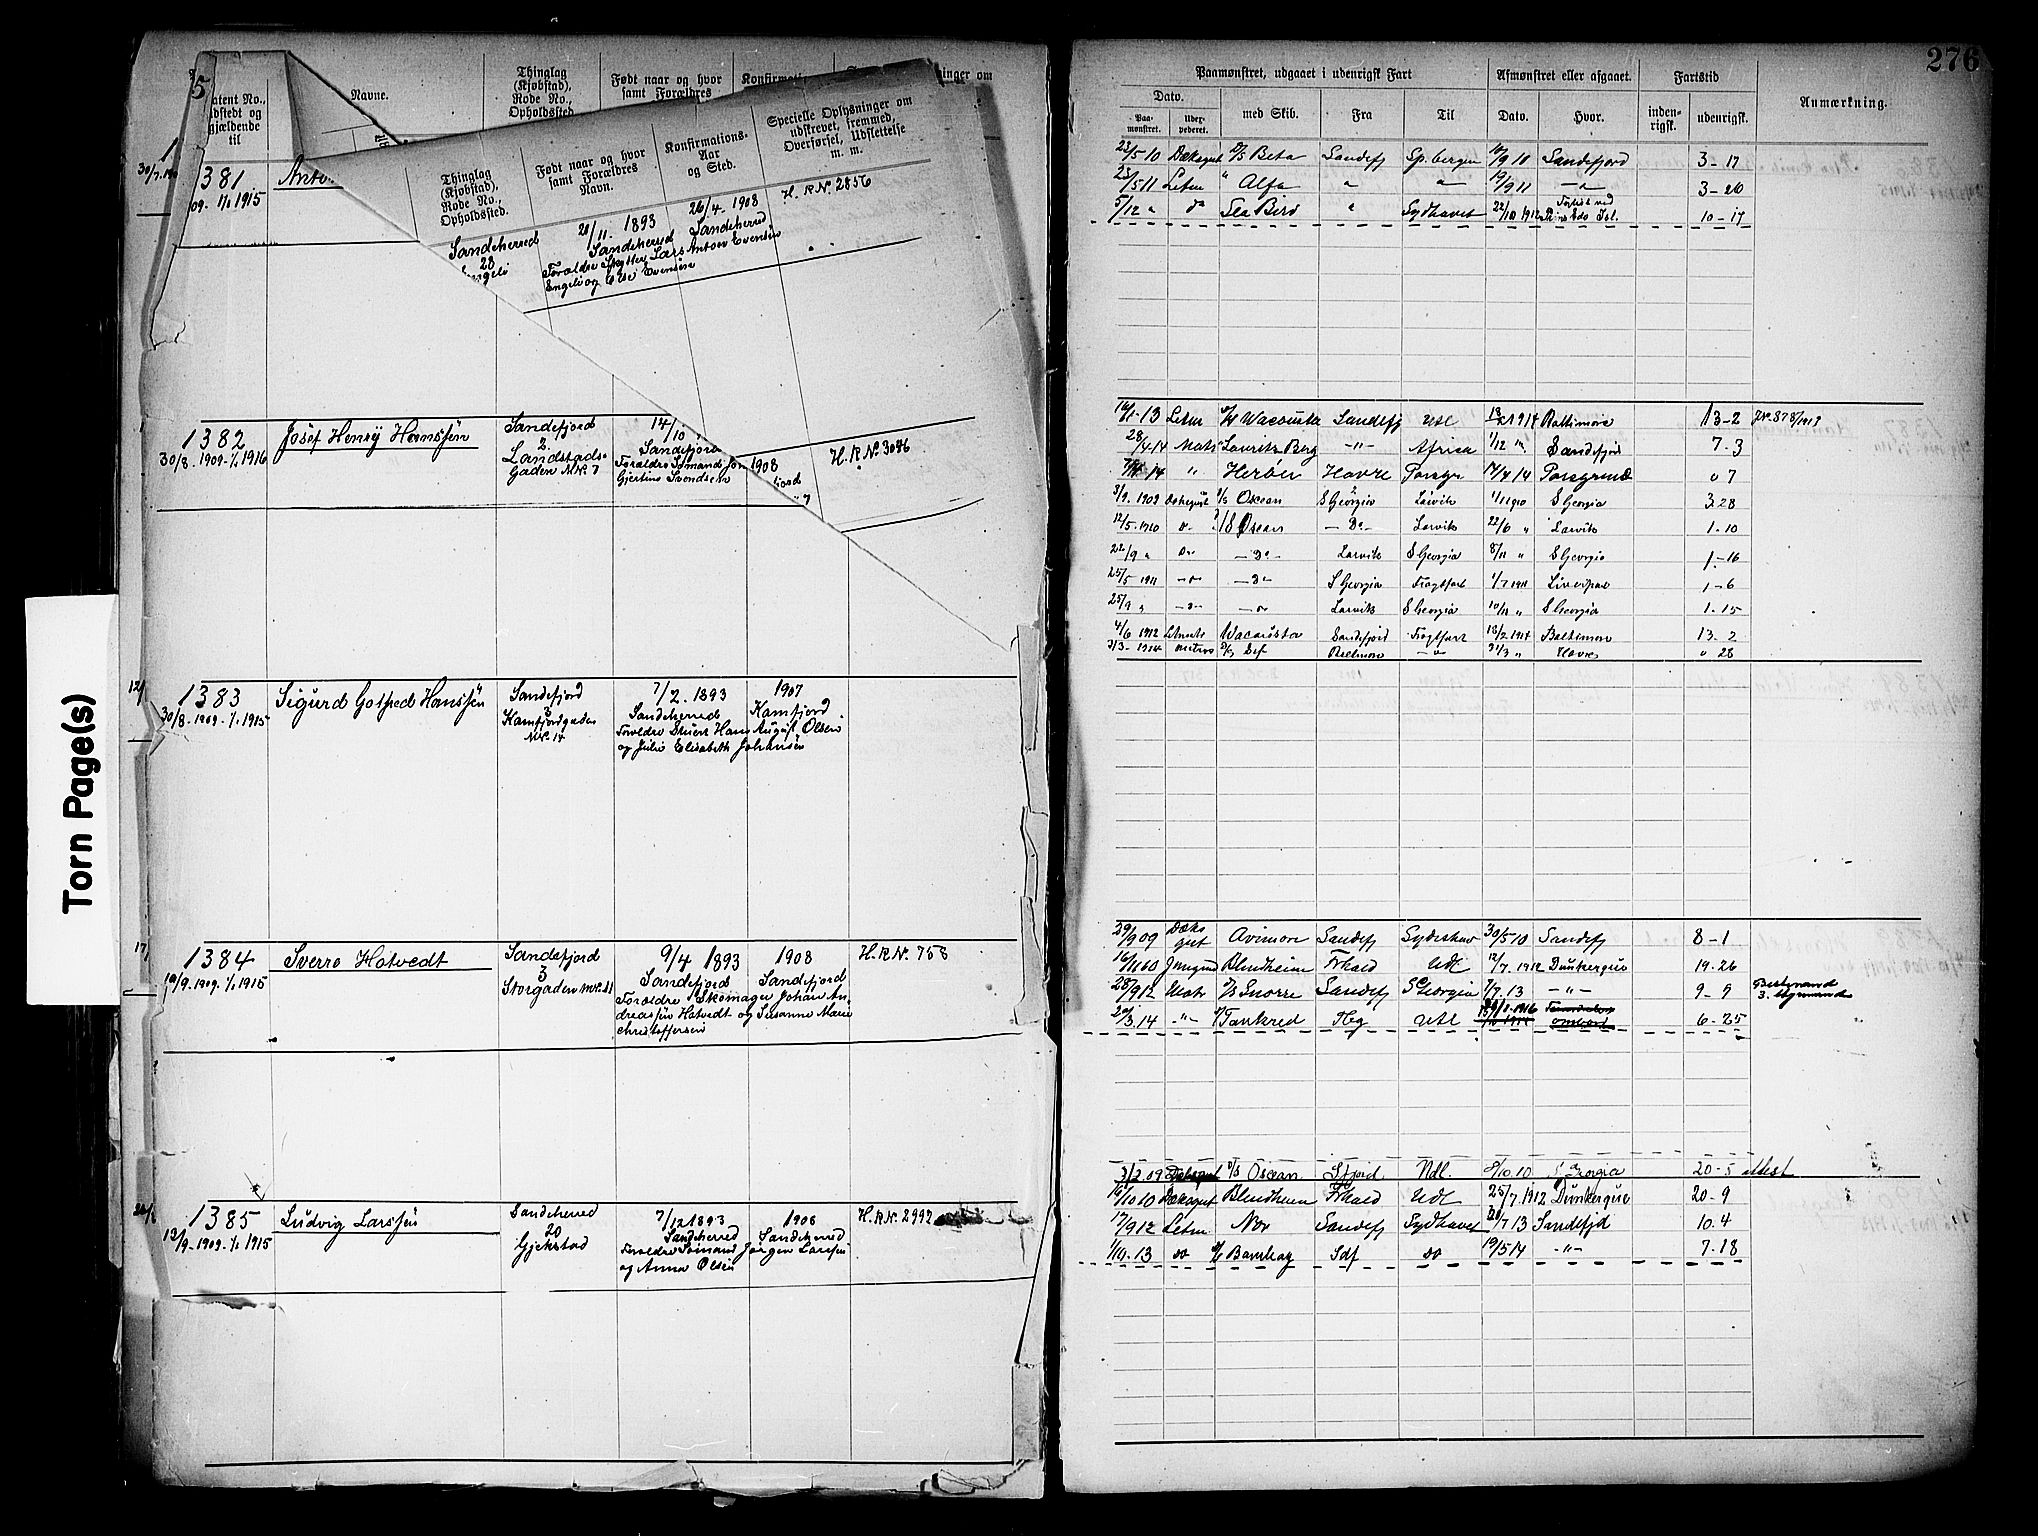 Torn Page(s)
5
Patent No.,
udstedt og
gjældende
til
Navne.
Thinglag
(Kjøbstad),
Rode No.,
Opholdssted.
Født naar og hvor
samt Forældres
Konfirmations-
1381
09. 1/1 1915
Anton
Thinglag
(Kjøbstad),
Rode No.,
Opholdssted.
Født naar og hvor
samt Forældres
Navn.
Konfirmations-
Aar
og Sted.
Specielle Oplysninger om
udskrevet, fremmed,
Overførsel, Udslettelse
m. m.
Sandeherred
28
Engelø
20/11. 1893
Sandeherred
26/4. 1908
Sandeherred
Foraldre Skytter Lars Antoon Evensen
Engelø og Else Evensen
H. R. N. 2856
1382
30/8. 1909. 1/1 1916
Josef Henry Hanssen
Sandefjord
2
Landstads-
Gaden No. 7
14/10
Sandefjord
1908
Foraldre Sømand
Gjertine Svendsen
H. R. N. 3046
1383
30/8. 1909. 1/1 1915
Sigurd Gotfred Hanssen
Sandefjord
3
Kamfjordgaden
No. 14
7/2. 1893
Sandeherred
1907
Kamfjord
Foraldre Druerr Hans August Olsen
og Julie Elisabeth Johansen
1384
10/9. 1909. 1/1 1915
Sverre Hotvedt
Sandefjord
3
Storgaden No. 11
9/4 1893
Sandefjord
1908
Sandefjord
Foraldre Skomager Johan An,
dreassen Hotvedt og Susanne Marie
Christoffersen
H. R. N. 758
1385
12/9. 1909. 1/1 1915
Ludvig Larssen
Sandeherred
20
Gjekstad
7/12 1893
Sandeherred
1908
Sandeherred
Foraldre Sømand Jørgen Larssen
og Anna Olsen
H. R. N. 2992
276
Paamønstret, udgaaet i udenrigsk Fart
Afmønstret eller afgaaet.
Fartstid
Anmærkning.
Dato.
Paa-
mønstret.
Uder-
pederet.
med Skib.
Fra
Til
Dato.
Hvor.
inden-
rigsk.
udenrigsk.
23/5 10 Dæksgut D/S Beta Sandefj Sp.bergen 10/9 10 Sandefjord 3-17
23/5 11 Letm " Alfa " " 19/9 11 — " — 3-26
5/12 " do Sea Berd " Sydhavet 22/10 1912 10-17
16/1-13 Letm Wacousta Sandefj Udl 13/2 1914 Baltimore 13-2 JN. 878/1919
28/4 14 Mats Lauritz Berg -"- Africa 1/12 Sandefjord 7-3
14 " Herbei Havre Porsgr 14/4 14 Porsgrund 0 7
3/9. 1909 Dæksgut Oscean S Georgia Larvik 1/11 1910 S Georgia 3.28
12/5. 1910 D. Oscean — Do — Larvik 22/6 " Larvik 1-10
22/9 " Do — Do — Larvik S Georgia 8/11 " S Georgia 1-16
25/5 1911 — D — — Do — S Georgia Fragtfart 1/7 1911 Liverpool 1-6
25/9 " — D — — Do — Larvik S Georgia 10/11 " S Georgia 1.15
4/6 1912 Letmats Wacousta Sandefjord Fragtfart 13/2 1914 Baltimore 13-2
3/3-1914 matros Baltimore — " — " Havre 0 28
29/9 09 Dæks
gut Avimore Sandefj Sydishav 30/5 10 Sandefj 8-1
Jungmd Blenheim Frhald Udl 12/7. 1912 Dunkerque 19.26
28/9 12 Matr Snorre Sandefj S Georgia 7/7. 13 -"- 9-9 Bestmand
3. styrmand
20/3. 14 -"- Tankred Fbg Udl 6-25
3/2. 09 Oscean Sfjord Udl. 8/10. 10 S Georgia 20-5 attest
10 10 Dæksgut Blenheim Frhald Udl 25/7. 1912 Dunkerque 20-9
17/9 12 Letm Nor Sandefj Sydhavet 7 13 Sandefjd 10.4
1/10. 13 do Sdf do 19/5 14 -"- 7-18